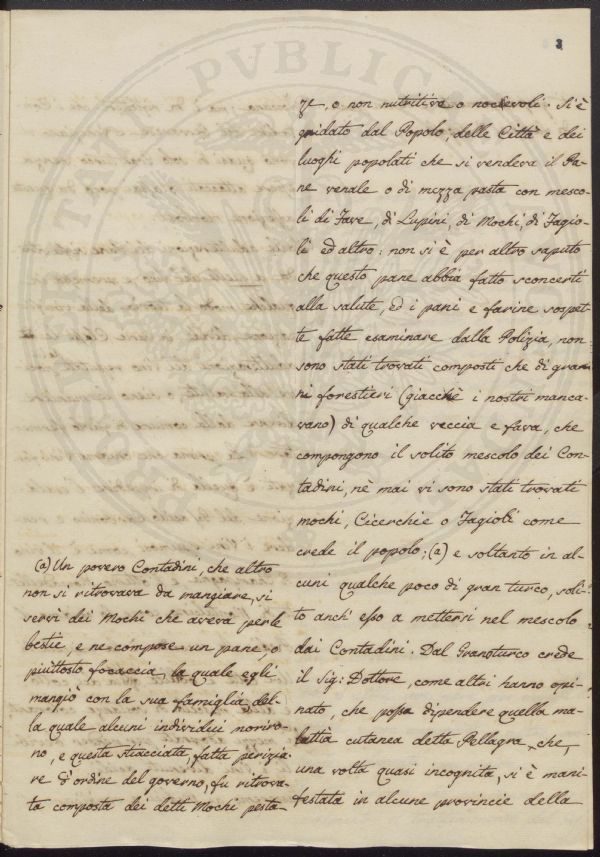 3
ze, o non nutritive o nocevoli. Si è
gridato dal Popolo, delle Città e dei
luoghi popolati che si vendeva il Pa-
ne venale o di mezza pasta con mesco-
li di Fave, di Lupini, di Mochi, di Fagio-
li ed altro: non si è per altro saputo
che questo pane abbia fatto sconcerti
alla salute, ed i pani e farine sospet-
te fatte esaminare dalla Polizia, non
sono stati trovati composti che di gra-
ni forestieri (giacchè i nostri manca-
vano) di qualche veccia e fava, che
compongono il solito mescolo dei Con-
tadini, nè mai vi sono stati trovati
mochi, Cicerchie o Fagioli come
crede il popolo; (a) e soltanto in al-
cuni qualche poco di gran turco, soli-
to anch' esso a mettersi nel mescolo
dai Contadini. Dal Granturco crede
il Sig: Dottore, come altri hanno opi-
nato, che possa dipendere quella ma-
lattia cutanea detta Pellagra, che,
una volta quasi incognita, si è mani-
festata in alcune provincie della
(a) Un povero Contadini, che altro
non si ritrovava da mangiare, si
servì dei Mochi che aveva per le
bestie, e ne compose un pane, o
piuttosto focaccia, la quale egli
mangiò con la sua famiglia, del-
la quale alcuni individui moriro-
no, e questa stiacciata, fatta perizia-
re d'ordine del governo, fu ritrova-
ta composta dei detti Mochi pesta-
PVBLICA